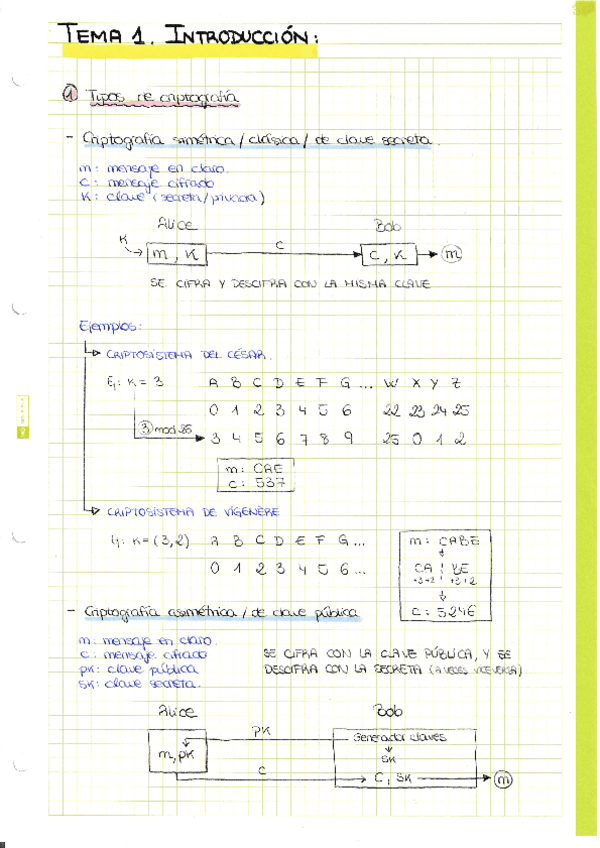 TEMA 1. INTRODUCCIÓN:
1 Tipos de criptografía
- Criptografía simétrica / clásica / de clave secreta.
m: mensaje en claro.
C: mensaje cifrado
K: clave (secreta/privada)
Alice Bob
K
m, K C C, K m
SE CIFRA Y DESCIFRA CON LA MISMA CLAVE
Ejemplos:
CRIPTOSISTEMA DEL CÉSAR.
Ej: K = 3 A B C D E F G ... W X Y Z
0 1 2 3 4 5 6 22 23 24 25
3 mod 26 3 4 5 6 7 8 9 25 0 1 2
m: CAE
C: 537
CRIPTOSISTEMA DE VIGENÈRE
Ej: K = (3,2) A B C D E F G ...
0 1 2 3 4 5 6 ...
m: CABE
CA BE
+3+2 +3+2
C: 5246
- Criptografía asimétrica / de clave pública
m: mensaje en claro.
C: mensaje cifrado
pK: clave pública
sK: clave secreta.
SE CIFRA CON LA CLAVE PÚBLICA, Y SE
DESCIFRA CON LA SECRETA (A VECES VICEVERSA)
Alice Bob
m, pK pK Generador claves
sK
C C, sK m